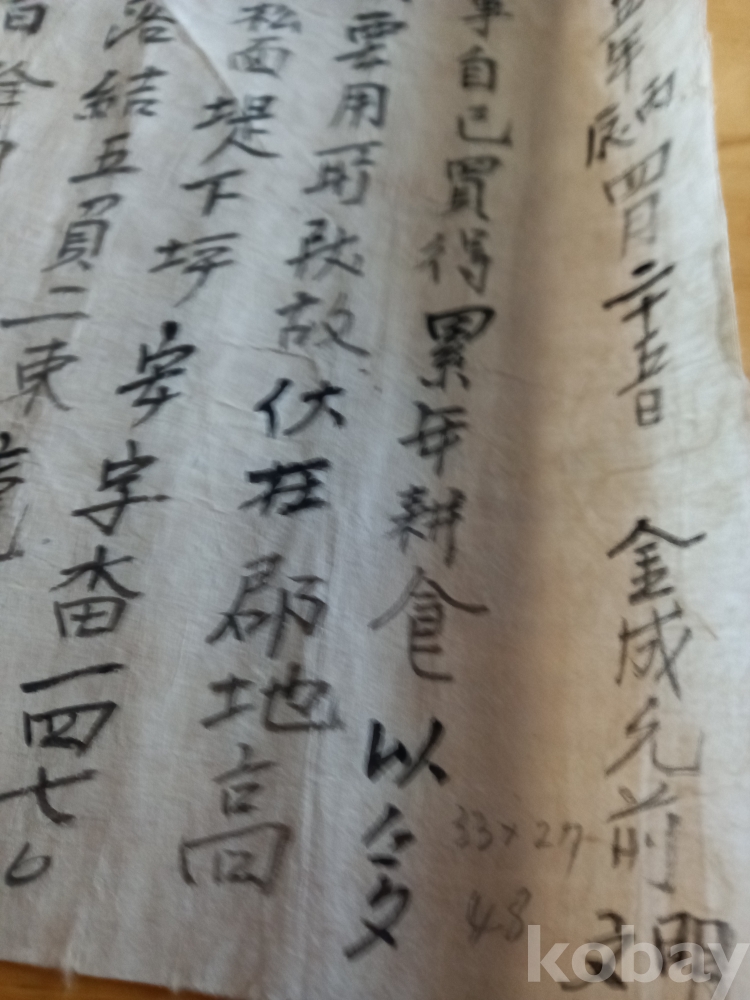 五年丙辰四月二十五日 金成允前明文
事自己買得累年耕食以多
雲用所致故伏在郡地高
松面堤下坪安字畓一四七
落結五負二束
33×27
48
kobay